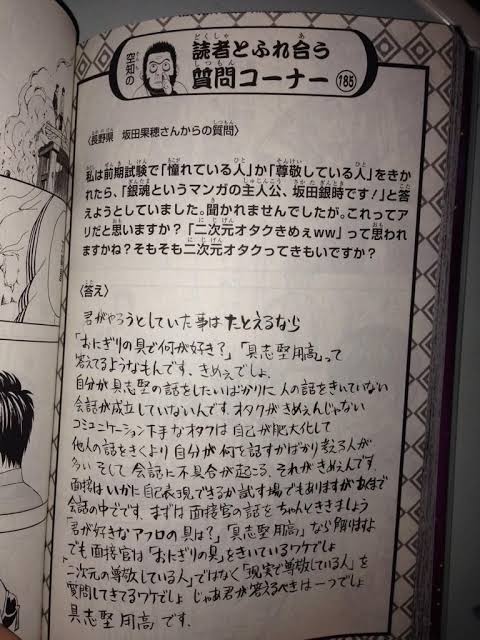 空知の
読者とふれ合う
質問コーナー
185
〈長野県 坂田果穂さんからの質問〉
私は前期試験で「憧れている人」か「尊敬している人」をきか
れたら、「銀魂というマンガの主人公、坂田銀時です!」と答
えようとしていました。聞かれませんでしたが。これってア
リだと思いますか?「二次元オタクきめぇww」って思われ
ますかね?そもそも二次元オタクってきもいですか?
〈答え〉
君がやろうとしていた事はたとえるなら
「おにぎりの具で何が好き?」「具志堅用高」って
答えてるようなもんです、きめぇでしょ。
自分が具志堅の話をしたいばかりに人の話をきいていない
会話が成立していないんです。オタクがきめぇんじゃない
コミュニケーション下手なオタクは自己が肥大化して
他人の話をきくより自分が何を話すかばかり考える人が
多い そして会話に不具合が起こる。それがきめぇんです。
面接はいかに自己表現できるか試す場でもありますがあくまで
会話の中でです。まずは面接官の話をちゃんとききましょう
「君が好きなアフロの具は?」「具志堅用高」なら解りますよ
でも面接官は「おにぎりの具」をきいているワケでしょ
「二次元の尊敬している人」ではなく「現実で尊敬している人」を
質問してきてるワケでしょ じゃあ君が答えるべきは一つでしょ
具志堅用高です。